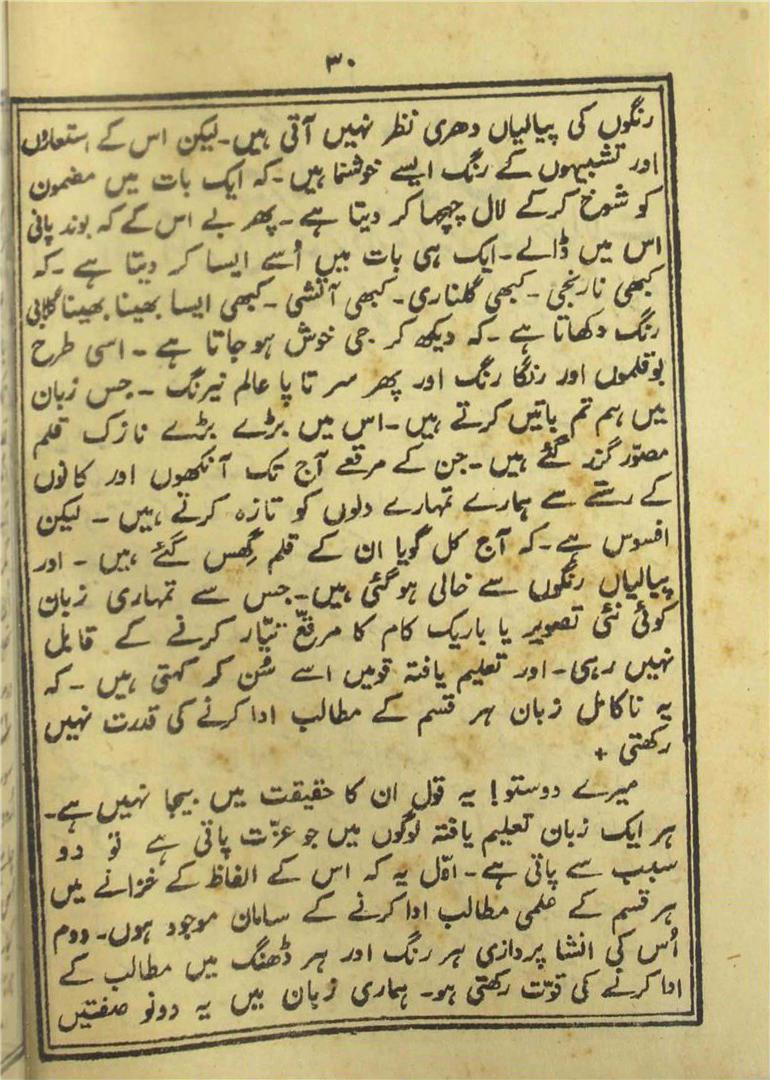 ۳۰
رنگوں کی پیالیاں دھری نظر نہیں آتی ہیں۔ لیکن اس کے استعاروں
اور تشبیہوں کے رنگ ایسے خوشنما ہیں۔ کہ ایک بات میں مضمون
کو شوخ کرکے لال چہچہا کر دیتا ہے۔ پھر بے اس کے کہ بوند پانی
اس میں ڈالے۔ ایک ہی بات میں اُسے ایسا کر دیتا ہے۔ کہ
کبھی نارنجی۔ کبھی گلناری۔ کبھی آتشی۔ کبھی ایسا بھینا بھینا گلابی
رنگ دکھاتا ہے۔ کہ دیکھ کر جی خوش ہو جاتا ہے۔ اسی طرح
بوقلموں اور رنگا رنگ اور پھر سر تا پا عالم نیرنگ۔ جس زبان
میں ہم تم باتیں کرتے ہیں۔ اس میں بڑے بڑے نازک قلم
مصوّر گزر گئے ہیں۔ جن کے مرقعے آج تک آنکھوں اور کانوں
کے رستے سے ہمارے تمہارے دلوں کو تازہ کرتے ہیں۔ لیکن
افسوس ہے۔ کہ آج کل گویا ان کے قلم گھِس گئے ہیں۔ اور
پیالیاں رنگوں سے خالی ہو گئی ہیں۔ جس سے تمہاری زبان
کوئی نئی تصویر یا باریک کام کا مرقّع تیّار کرنے کے قابل
نہیں رہی۔ اور تعلیم یافتہ قومیں اسے سُن کر کہتی ہیں۔ کہ
یہ ناکامل زبان ہر قسم کے مطالب ادا کرنے کی قدرت نہیں
رکھتی +
میرے دوستو! یہ قول ان کا حقیقت میں بیجا نہیں ہے۔
ہر ایک زبان تعلیم یافتہ لوگوں میں جو عزّت پاتی ہے تو دو
سبب سے پاتی ہے۔ اوّل یہ کہ اس کے الفاظ کے خزانے میں
ہر قسم کے علمی مطالب ادا کرنے کے سامان موجود ہوں۔ دوم
اُس کی انشا پردازی ہر رنگ اور ہر ڈھنگ میں مطالب کے
ادا کرنے کی قوّت رکھتی ہو۔ ہماری زبان میں یہ دونو صفتیں